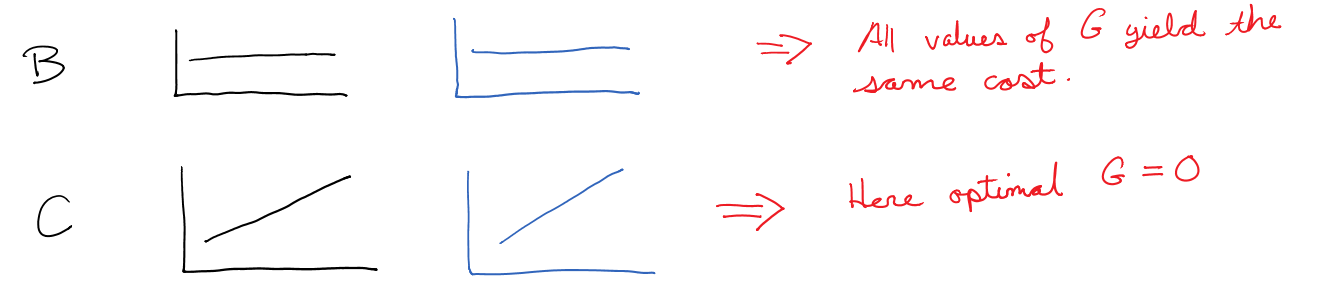 B ⇒ All values of G yield the
same cost.
C ⇒ Here optimal G = 0